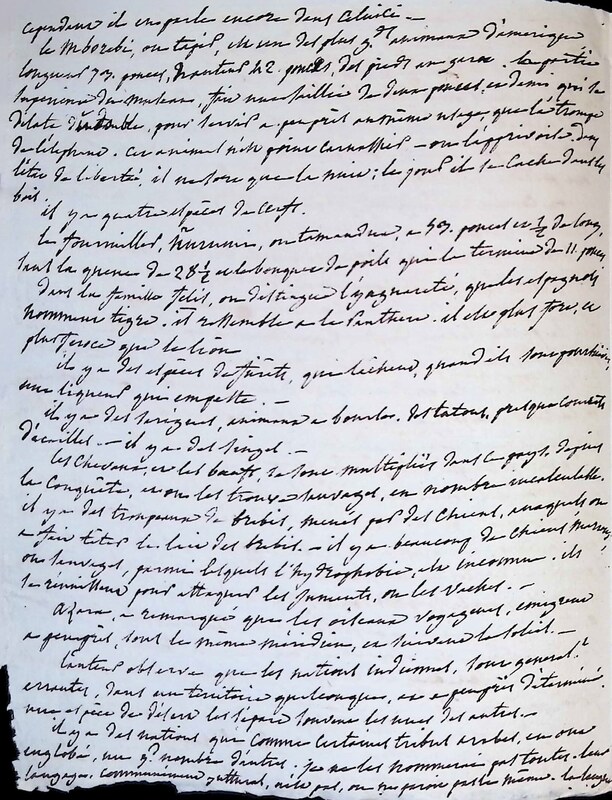 cependant il en parle encore dans celuici —
le Mborebi, ou tapir, est un des plus gds animaux d'amerique
longueur 73. pouces, hauteur 42. pouces, des pieds au garot. la partie
superieure du museau, fait une saillie de deux pouces et demi qui se
dilate pour servir a peu près au même usage, que la trompe
de l'elephant. cet animal n'est point carnassier — on l'apprivoise. dans
l'état de liberté, il ne sort que la nuit; le jour il se cache dans les
bois.
il y a quatre especes de cerfs.
Le fourmillier, Ñurumi, ou tamandua, a 53. pouces et ½ de long,
sans la queue de 28 ½ et le bouquet de poils qui la termine de 11. pouces
dans la famille felis, on distingue l'yaguareté, que les espagnols
nomment tigre. il ressemble a la Panthere. il est plus fort, et
plus feroce que le lion
il y a des especes de furets, qui lachent, quand ils sont poursuivis,
une liqueur qui empeste. —
il y a des sarigues, animaux a bourse. des tatous, presque couverts
d'ecailles. — il y a des singes. —
Les chevaux, et les boeufs, se sont multipliés dans ce pays, depuis
la conquête, et on les trouve sauvages, en nombre incalculable.
il y a des troupeaux de brebis, menés par des chiens, auxquels on
a fait têter le lait des brebis. — il y a beaucoup de chiens
ou sauvages, parmi lesquels l'hydrophobie, est inconnue. ils
se réunissent pour attaquer les juments, ou les vaches. —
Azara, a remarqué que les oiseaux voyageurs, emigrent
a peu près, sous le même méridien, en suivant le soleil. —
L'auteur observe que les nations indiennes, sont general.t
errantes, dans un territoire quelconque, et a peu près déterminé
une espèce de désert les sépare souvent les unes des autres. —
il y a des nations que comme certaines tribus arabes, en ont
englobé, un gd nombre d'autres. je ne les nommerai pas toutes. leur
langage, communement guttural, n'est pas, ou ne paroit pas le même. la langue